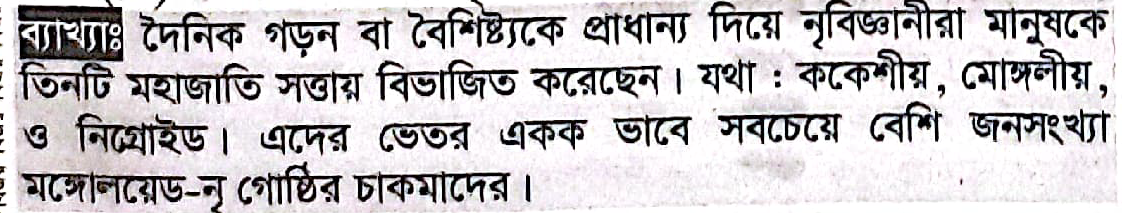 ব্যাখ্যাঃ দৈনিক গড়ন বা বৈশিষ্ট্যকে প্রাধান্য দিয়ে নৃবিজ্ঞানীরা মানুষকে
তিনটি মহাজাতি সত্তায় বিভাজিত করেছেন। যথা : ককেশীয়, মোঙ্গলীয়,
ও নিগ্রোইড। এদের ভেতর একক ভাবে সবচেয়ে বেশি জনসংখ্যা
মঙ্গোলয়েড-নৃ গোষ্ঠির চাকমাদের।